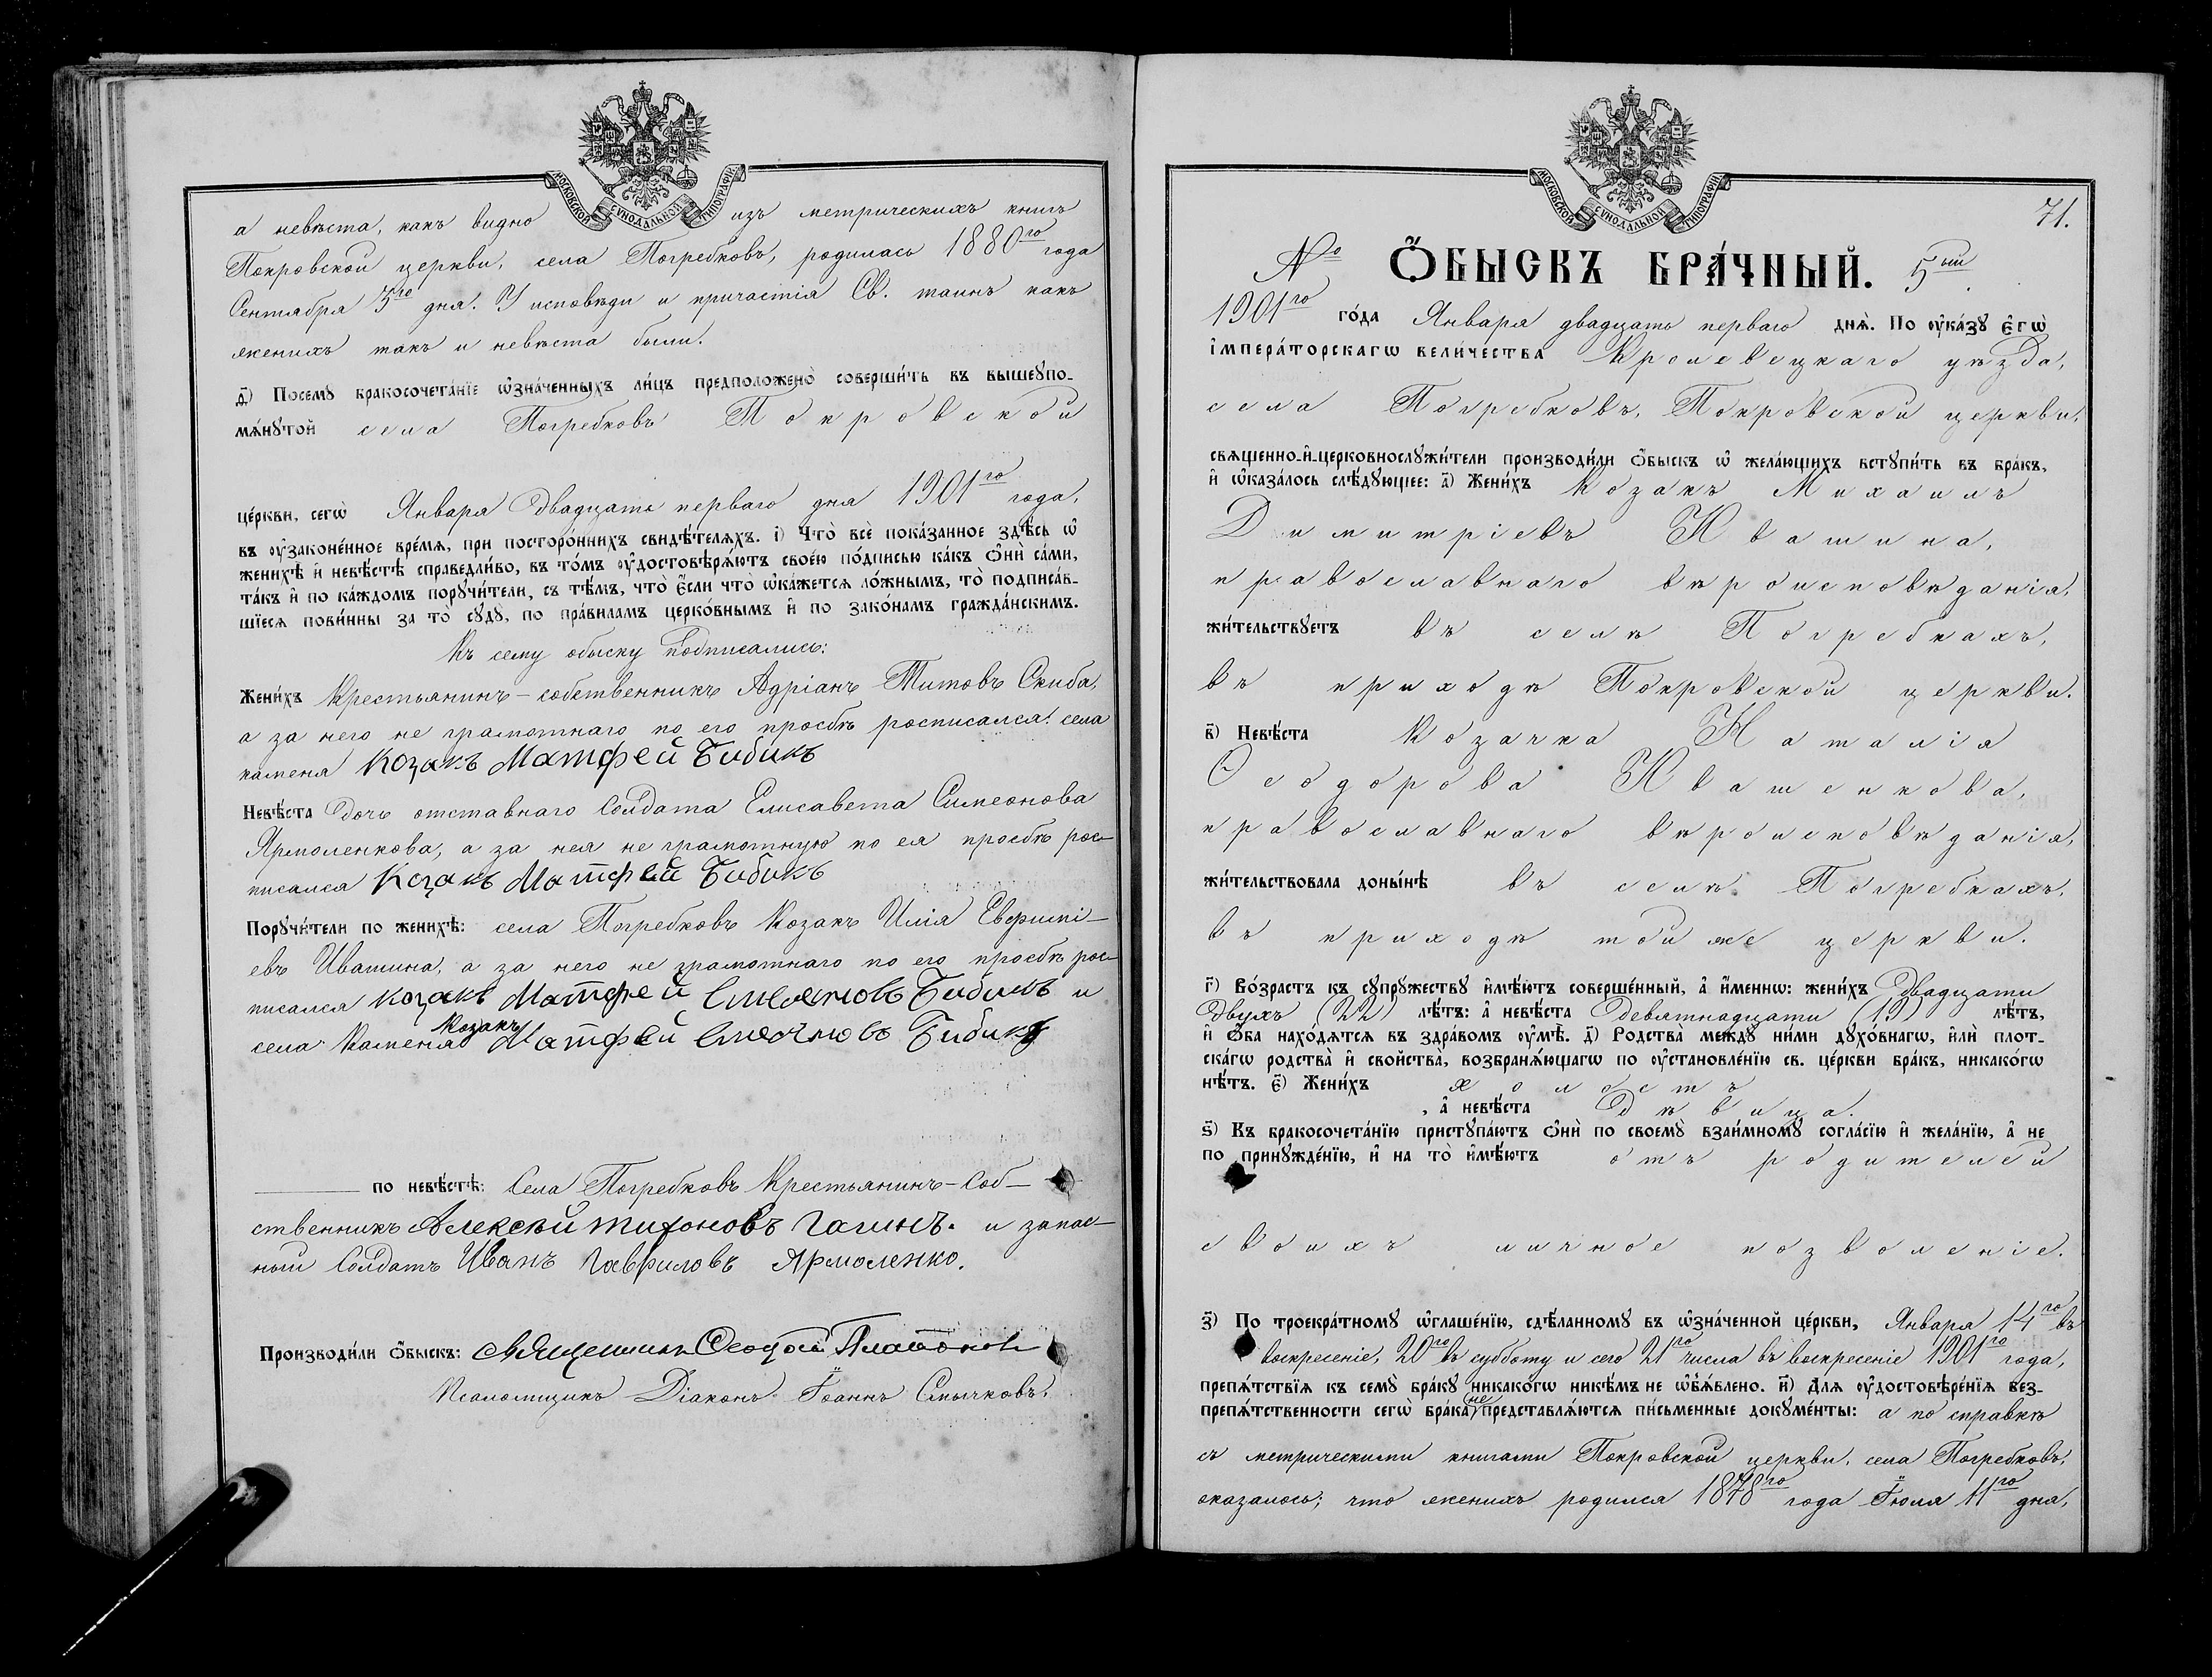 МОСКОВСКОЙ СѴНОДАЛЬНОЙ ТИПОГРАФІИ
а невѣста, какъ видно изъ метрическихъ книгъ
Покровской церкви, села Погребковъ, родилась 1880го года
Сентября 5го дня. У исповѣди и причастія Св. таинъ какъ
женихъ такъ и невѣста были.
д҃) Посемꙋ бракосочета́нїе ѡ҆зна́ченныхъ ли́цъ предположено̀ соверши́ть въ вышеꙋпо-
мѧ́нꙋтой села Погребковъ Покровской
це́ркви, сегѡ̀ Января двадцать перваго дня 1901го года,
въ ᲂу҆законе́нное вре́мѧ, при посторо́ннихъ свидѣ́телѧхъ. і҃) Что̀ всѐ пока́занное здѣ́сь ѡ҆
женихѣ̀ и҆ невѣ́стѣ справедли́во, въ то́мъ ᲂу҆достовѣрѧ́ютъ свое́ю по́дписью ка́къ ѻ҆нѝ са́ми,
та́къ и҆ по ка́ждомъ порꙋчи́тели, съ тѣ́мъ, что̀ є҆́сли что̀ ѡ҆ка́жетсѧ ло́жнымъ, то̀ подписа́в-
шїесѧ пови́нны за то̀ сꙋдꙋ̀, по пра́виламъ церко́внымъ и҆ по зако́намъ гражда́нскимъ.
Къ сему обыску подписались:
Жени́хъ Крестьянинъ-собственникъ Адріанъ Титовъ Скиба,
а за него не грамотнаго по его просьбѣ росписался: села
каменя Козакъ Матфей Бибикъ
Невѣ́ста дочь отставнаго Солдата Елисавета Симеонова
Ярмоленкова, а за нея не грамотную по ея просьбѣ рос-
писался Козакъ Матфей Бибикъ
Порꙋчи́тели по женихѣ̀: села Погребковъ Козакъ Илія Евфимі-
евъ Ивашина, а за него не грамотнаго по его просьбѣ рос-
писался козакъ Матфей Симеоновъ Бибикъ и
села Каменя Козакъ Матфей Симеоновъ Бибикъ
по невѣ́стѣ: Села Погребковъ Крестьянинъ-Соб-
ственникъ Алексѣй Тихоновъ Гагинъ. и запас-
ный Солдатъ Иванъ Гавриловъ Ярмоленко.
Производи́ли ѻ҆́быскъ: священникъ Ѳеодосій Платоновъ
Псаломщикъ Діаконъ Іоаннъ Смычковъ.
МОСКОВСКОЙ СѴНОДАЛЬНОЙ ТИПОГРАФІИ
71.
№ Ѻ҆́БЫСКЪ БРА́ЧНЫЙ. 5ый
1901го го́да Января двадцать перваго днѧ̀. По ᲂу҆ка́зꙋ є҆гѡ̀
і҆мпера́торскагѡ вели́чества Кролевецкаго уѣзда,
села Погребковъ, Покровской церкви,
свѧщенно-и҆-церковнослꙋжи́тели производи́ли ѻ҆́быскъ ѡ҆ жела́ющихъ встꙋпи́ть въ бра́къ,
и҆ ѡ҆каза́лось слѣ́дꙋющее: а҃) Жени́хъ Козакъ Михаилъ
Димитріевъ Ивашина,
православнаго вѣроисповѣданія,
жи́тельствꙋетъ въ селѣ Погребкахъ,
въ приходѣ Покровской церкви.
в҃) Невѣ́ста Козачка Наталія
Ѳеодорова Ивашенкова,
православнаго вѣроисповѣданія,
жи́тельствовала доны́нѣ въ селѣ Погребкахъ,
въ приходѣ той же церкви.
г҃) Во́зрастъ къ сꙋпрꙋ́жествꙋ и҆мѣ́ютъ соверше́нный, а҆ и҆́меннѡ: жени́хъ двадцати
двухъ (22) лѣ́тъ: а҆ невѣ́ста девятнадцати (19) лѣ́тъ,
и҆ ѻ҆́ба нахо́дѧтсѧ въ здра́вомъ ᲂу҆мѣ̀. д҃) Родства̀ междꙋ̀ ни́ми дꙋхо́внагѡ, и҆лѝ плот-
ска́гѡ родства̀ и҆ сво́йства, возбранѧ́ющагѡ по ᲂу҆становле́нїю св. це́ркви бра́къ, никако́гѡ
нѣ́тъ. є҃) Жени́хъ холостъ
, а҆ невѣ́ста дѣвица.
ѕ҃) Къ бракосочета́нїю пристꙋпа́ютъ ѻ҆нѝ по своемꙋ̀ взаи́мномꙋ согла́сїю и҆ жела́нїю, а҆ не
по принꙋжде́нїю, и҆ на то̀ и҆мѣ́ютъ отъ родителей
своихъ личное позволеніе.
з҃) По троекра́тномꙋ ѡ҆глаше́нїю, сдѣ́ланномꙋ въ ѡ҆зна́ченной це́ркви, Января 14го въ
воскресеніе, 20го въ субботу и сего 21го числа въ воскресеніе 1901го года,
препѧ́тствїѧ къ семꙋ̀ бра́кꙋ никако́гѡ никѣ́мъ не ѡ҆б̾ѧ́влено. и҃) Длѧ ᲂу҆достовѣре́нїѧ без-
препѧ́тственности сегѡ̀ бра́ка не представлѧ́ютсѧ пи́сьменные докꙋме́нты: а по справкѣ
съ метрическими книгами Покровской церкви, села Погребковъ,
оказалось; что женихъ родился 1878го года Іюля 11го дня,